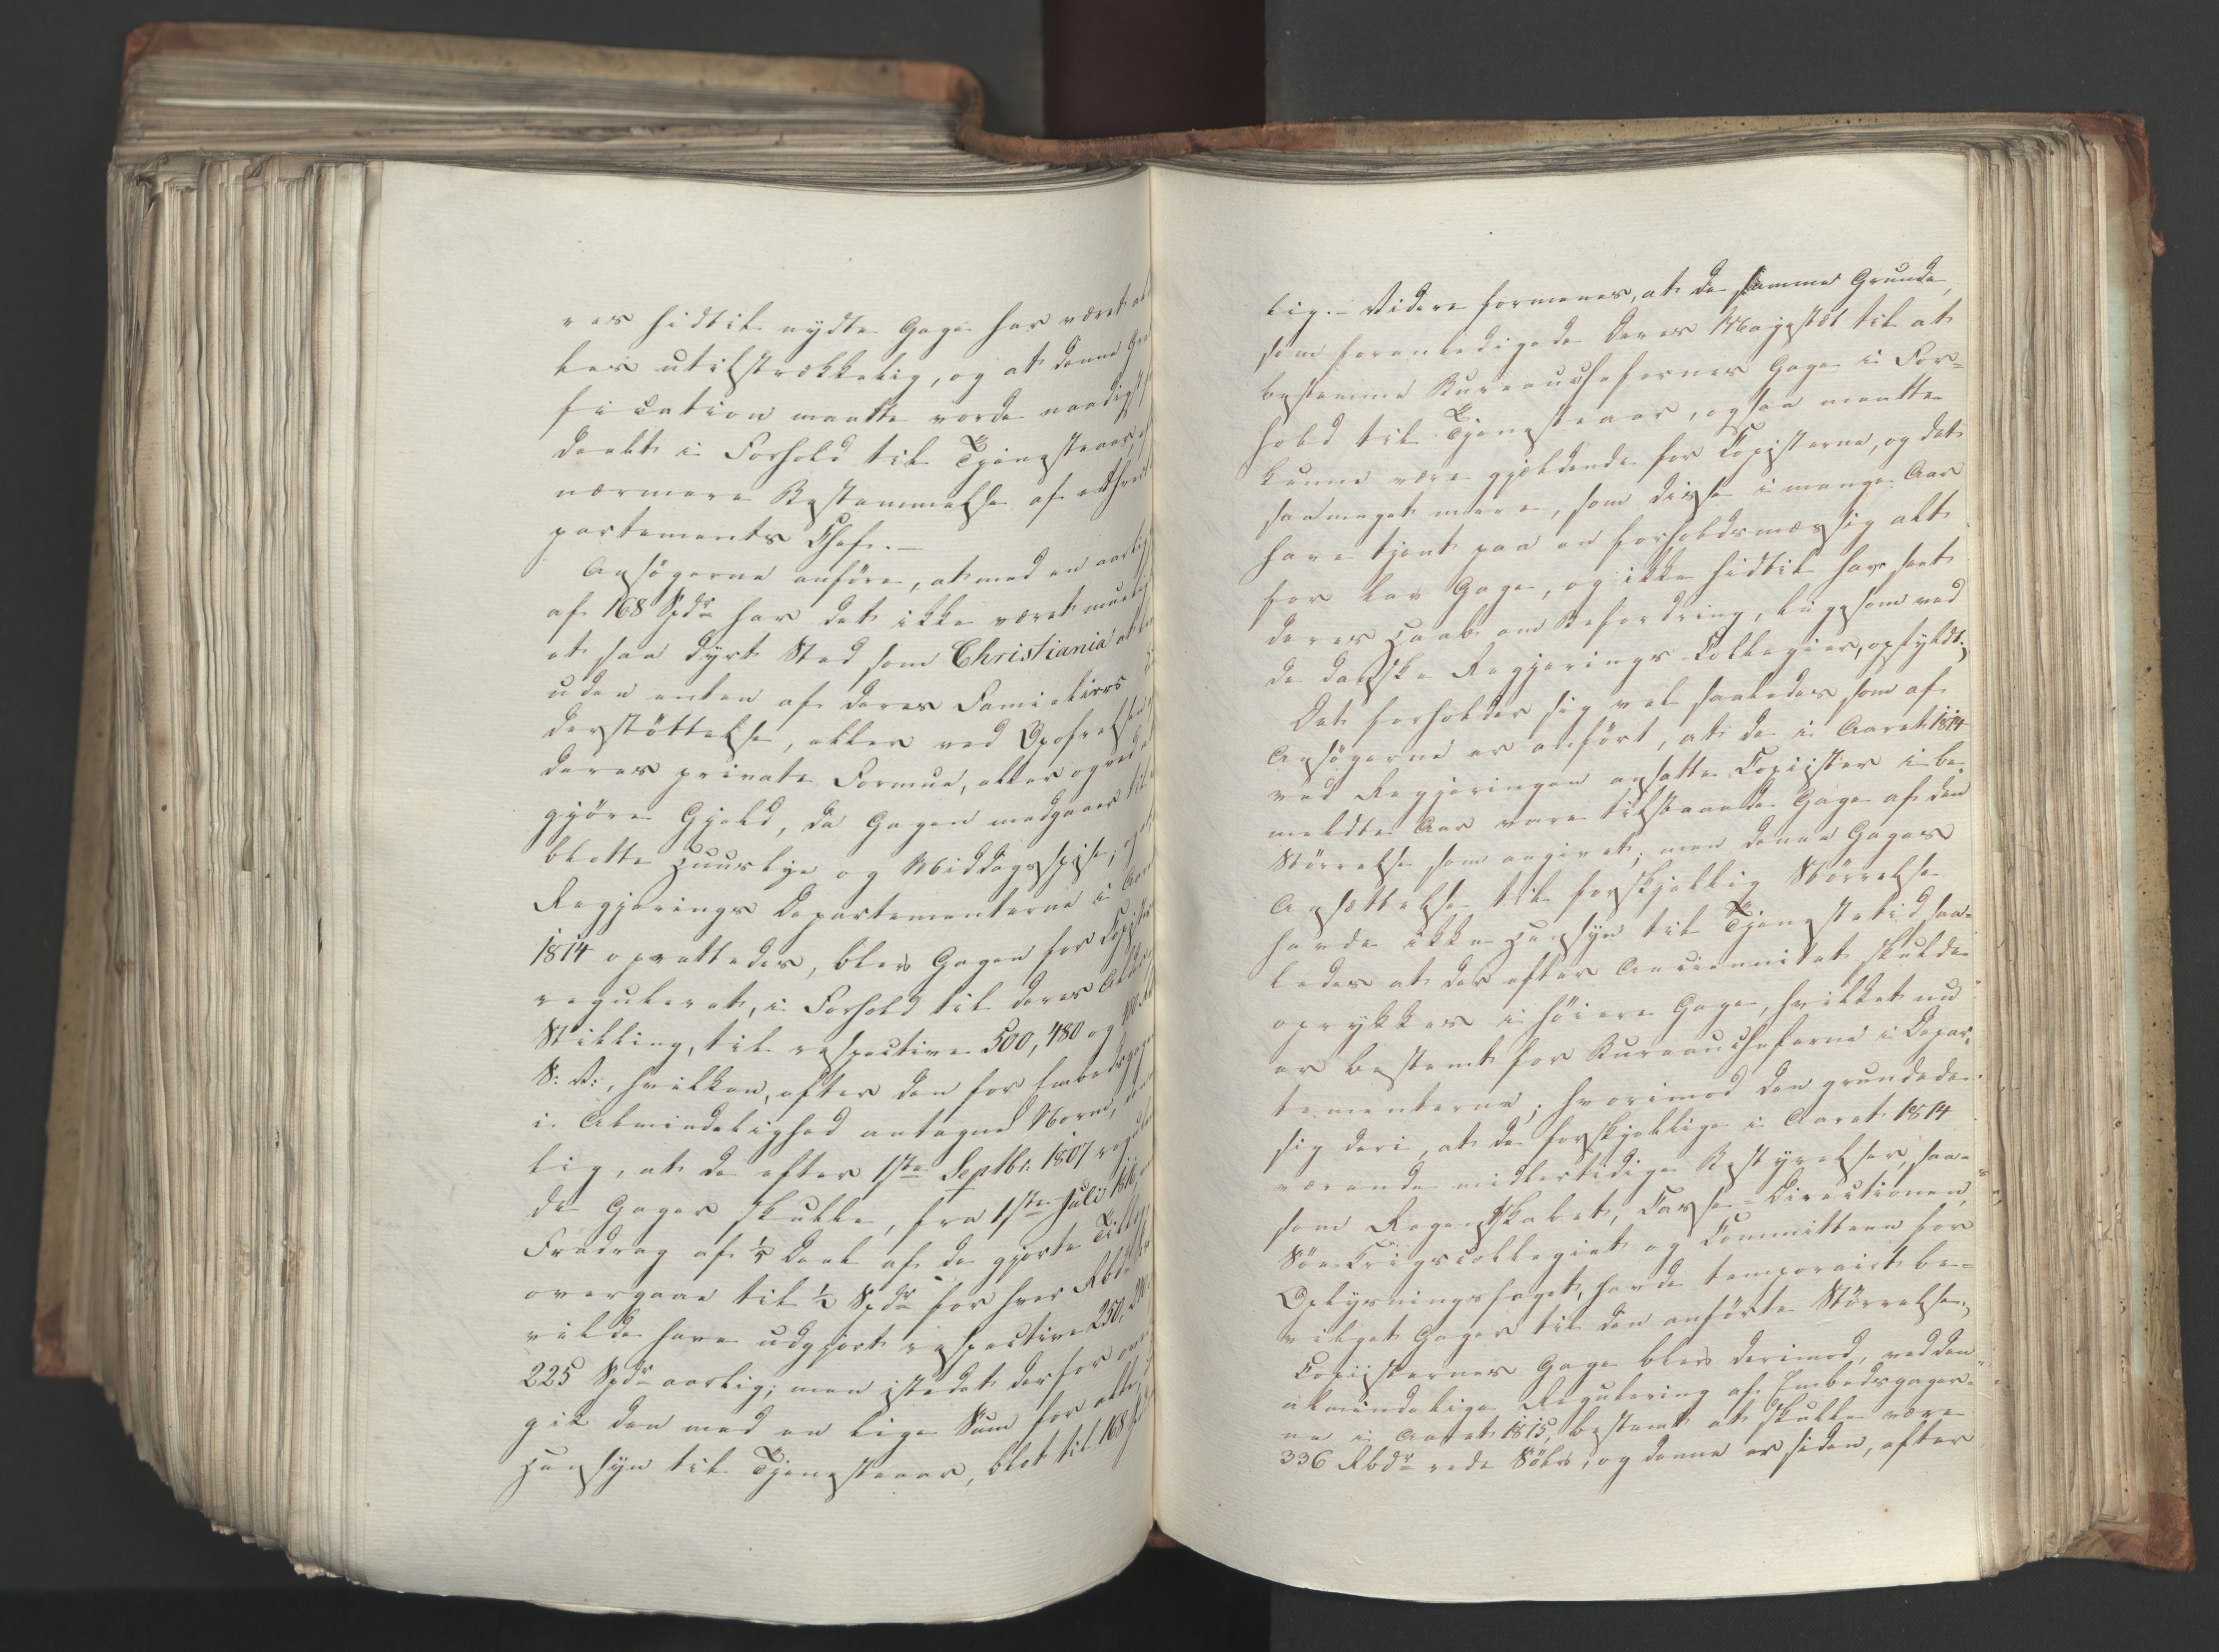 res hidtil nydte Gage har været
les utilstrækkelig, og at denne
fication maatte vorde naadigst
deelt i Forhold til Tjenesteaar,
nærmere Bestemmelse af ethvert
partements Chef. –
Ansøgerne anføre, at med en aarlig
af 168 Spdr har det ikke været mueligt
et saa dyrt Sted som Christiania at
uden enten af deres Familiers
derstøttelse, eller ved Opofrelse
deres private Formue, eller og ved at
gjøre Gjeld, da Gagen medgaaer til
blotte Huuslye og Middagsspise;
Regjerings Departementerne i Aaret
1814 oprettedes, blev Gagen for Copister
reguleret, i Forhold til deres
Stilling, til respective 500, 480 og
S: V:, hvilken, efter den for Embedsgager
i Almindelighed antagne Norm,
lig, at de efter 1ste Septbr. 1807
de Gager skulle, fra 1ste Julii 1816,
Fradrag af 1/5 Deel af de gjorte
overgaae til 1/2 Spdr for hver Rbdr
vilde have udgjort respective 250, 240
225 Spdr aarlig; men istedet derfor
gik den med en lige Sum for alle,
Hensyn til Tjenesteaar, blot til 168
lig. – Videre formenes, at de samme Grunde,
som foranledigede Deres Majestæt til at
bestemme Bureauchefernes Gage i For-
hold til Tjenesteaar, ogsaa maatte
kunne være gjeldende for Copisterne, og det
saameget mere, som disse i mange Aar
have tjent paa en forholdsmæssig alt
for lav Gage, og ikke hidtil har seet
deres Haab om Befordring, ligesom ved
de danske Regjerings-Collegier, opfyldt.
Det forholder sig vel saaledes, som af
Ansøgerne er anført, at de i Aaret 1814
ved Regjeringen ansatte Copiister i be-
meldte Aar vare tilstaaede Gage af den
Størrelse, som angivet; men denne Gages
Ansættelse til forskjellig Størrelse
havde ikke Hensyn til Tjenestetid saa-
ledes at der efter Anciennitet skulde
oprykkes i høiere Gage, hvilket nu
er bestemt for Bureaucheferne i Depar-
tementerne; hvorimod den grundede
sig deri, at de forskjellige i Aaret 1814
værende midlertidige Bestyrelser, saa-
som Regentskabet, Casse-Directionen,
Søe-Krigscollegiet og Committeen for
Oplysningsfaget, havde temporairt be-
vilget Gager til den anførte Størrelse.
Copiisternes Gage blev derimod, ved den
almindelige Regulering af Embedsgager-
ne i Aaret 1815, bestemt at skulle være
336 Rbdr rede Sølv, og denne er siden, efter